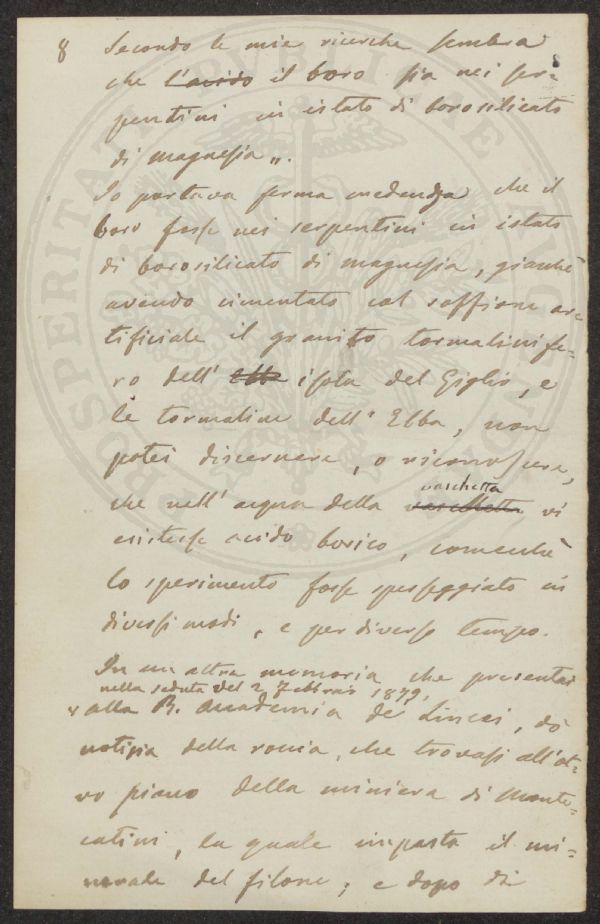 8 Secondo le mie ricerche sembra
che l'acido il boro sia nei ser=
pentini in istato di borosilicato
di magnesia „.
Io portava ferma credenza che il
boro fosse nei serpentini in istato
di borosilicato di magnesia, giacchè
avendo cimentato col soffione ar=
tificiale il granito tormalinife=
ro dell' Elba isola del Giglio, e
le tormaline dell' Elba, non
potei discernere, o riconoscere,
che nell' acqua della vaschetta vi
esistesse acido borico, comecchè
lo sperimento fosse spesseggiato in
diversi modi, e per diverso tempo.
In un altra memoria che presentai
nella seduta del 2 Febbraio 1879,
alla R. Accademia de' Lincei, dò
notizia della roccia, che trovasi all'ot=
vo piano della miniera di Monte=
catini, la quale impasta il mi=
nerale del filone; e dopo di
PROSPERITATI PUBLICAE AUGENDAE